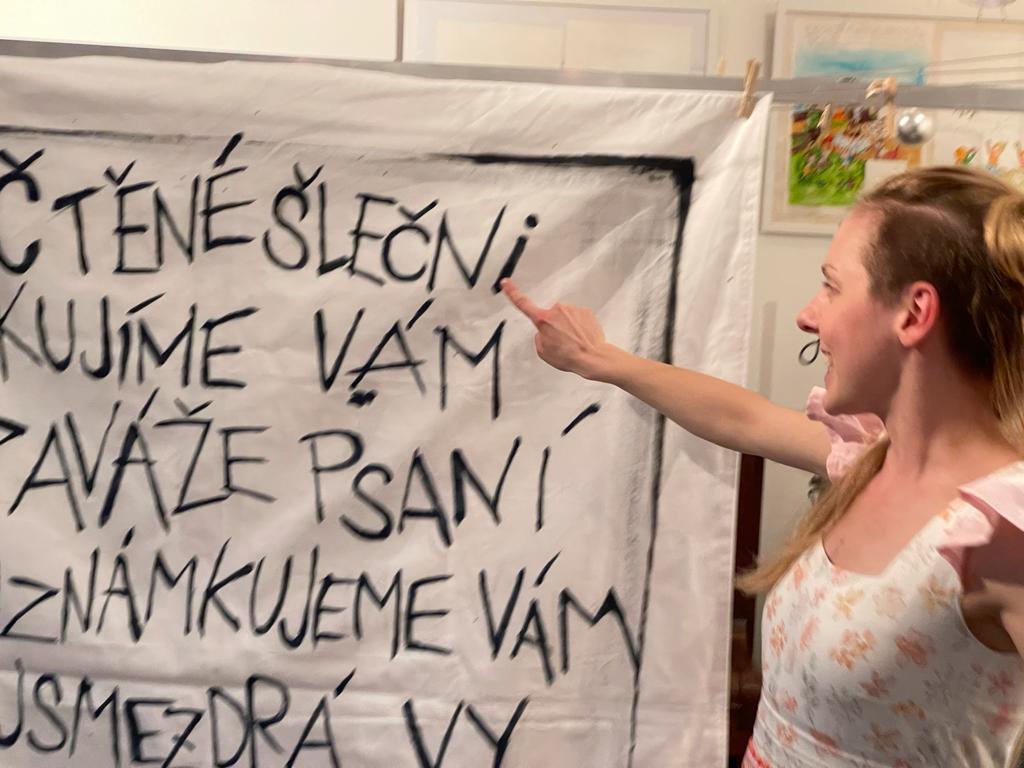 ČTĚNÉ ŠLEČNi
KUJÍME VÁM
ZAVÁŽE PSANÍ
ZNÁMKUJEME VÁM
JSME ZDRÁ VY